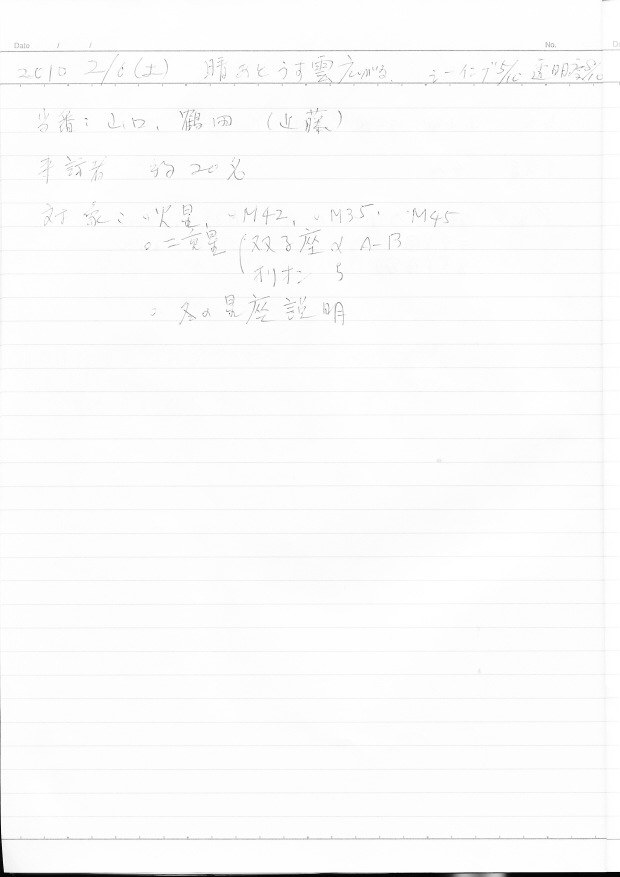 Date / / No.
2010 2/6(土) 晴あとうす雲広がる. シーイング5/10 透明度
当番: 山口, 鶴田 (近藤)
来訪者 約20名
対象: ・火星, ・M42, ・M35. ・M45
。二重星 (双子座α A-B
オリオン
・冬の星座説明